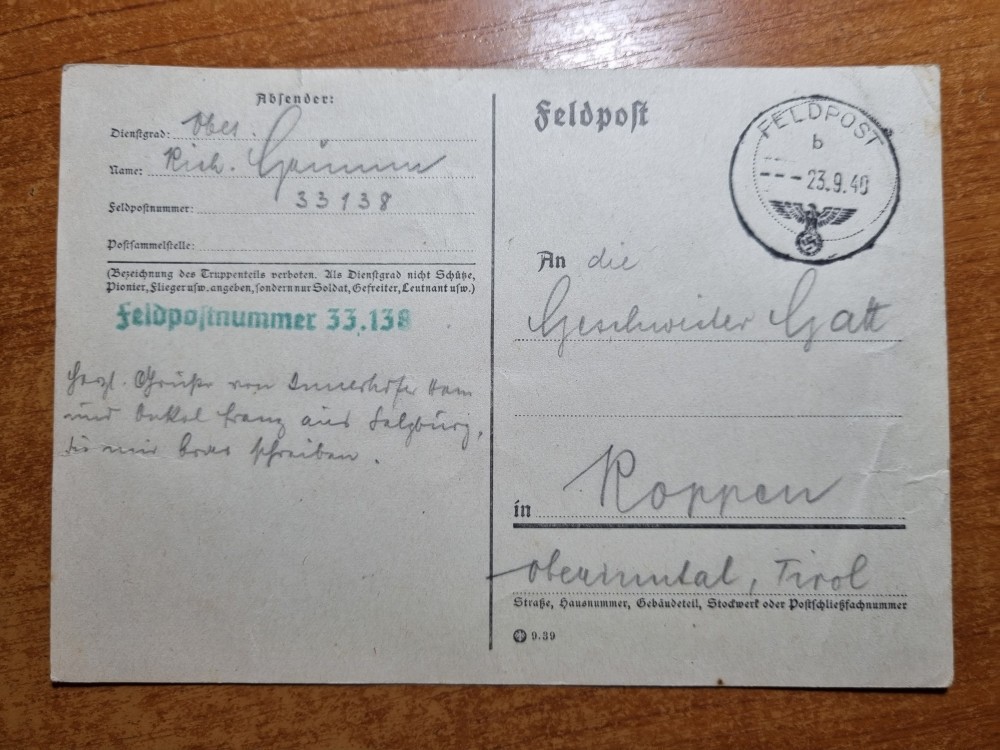 Absender:
Dienstgrad: Ober.
Name: Rich. Grimm
Feldpostnummer: 33138
Postsammelstelle:
(Bezeichnung des Truppenteils verboten. Als Dienstgrad nicht Schütze,
Pionier, Flieger usw. angeben, sondern nur Soldat, Gefreiter, Leutnant usw.)
Feldpostnummer 33.138
Herzl. Grüße von Innerhofer
und Onkel Franz aus Salzburg,
die mir brav schreiben.
Feldpost
FELDPOST
b
--- 23.9.40
An die
Geschwister Gatt
in Roppen
Oberinntal, Tirol
Straße, Hausnummer, Gebäudeteil, Stockwerk oder Postschließfachnummer
9.39